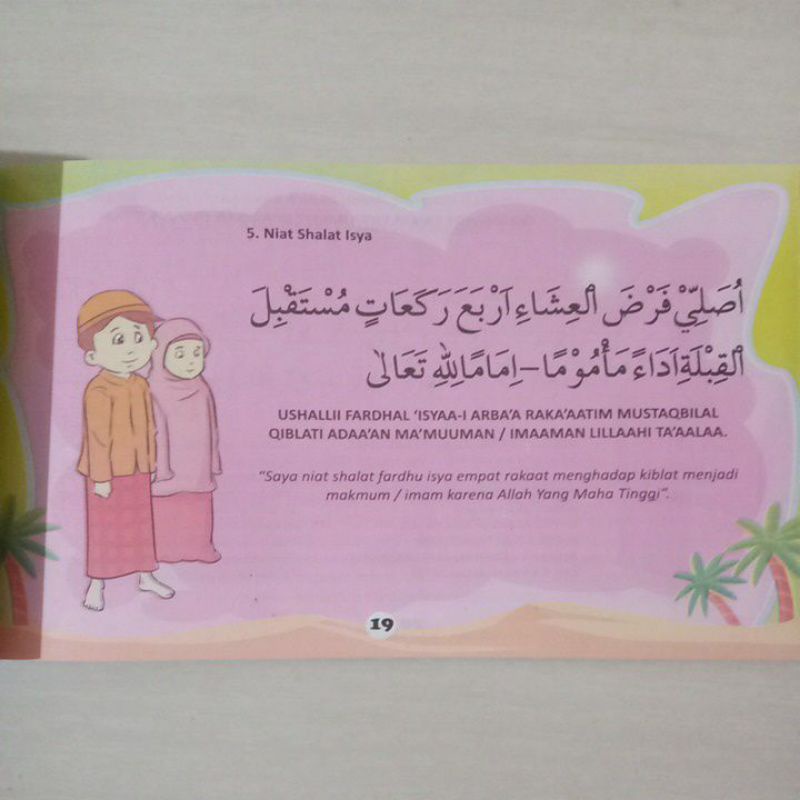 5. Niat Shalat Isya
اُصَلِّيْ فَرْضَ الْعِشَاءِ اَرْبَعَ رَكَعَاتٍ مُسْتَقْبِلَ
الْقِبْلَةِ اَدَاءً مَأْمُوْمًا – اِمَامًا لِلّٰهِ تَعَالٰى
USHALLII FARDHAL ‘ISYAA-I ARBA’A RAKA’AATIM MUSTAQBILAL
QIBLATI ADAA’AN MA’MUUMAN / IMAAMAN LILLAAHI TA’AALAA.
“Saya niat shalat fardhu isya empat rakaat menghadap kiblat menjadi
makmum / imam karena Allah Yang Maha Tinggi”.
19